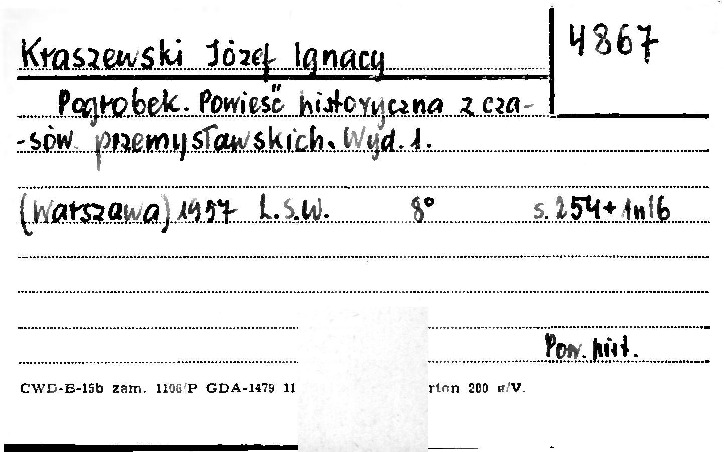 4867
Kraszewski Józef Ignacy
Pogrobek. Powieść historyczna z cza-
-sów przemysławskich. Wyd. 1.
(Warszawa) 1957 L.S.W. 8° s. 254+1nlb
Pow. hist.
CWD-E-15b zam. 1106/P GDA-1479 11 rton 200 g/V.